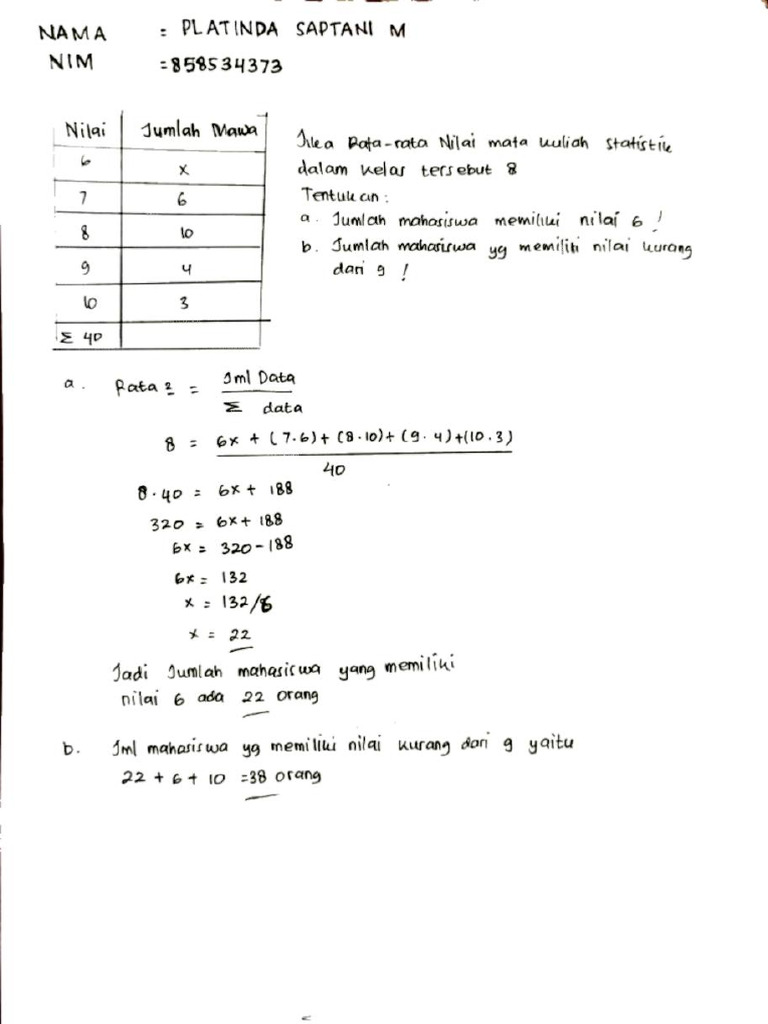 NAMA : PLATINDA SAPTANI M
NIM : 858534373
Nilai Jumlah Mawa
6 x
7 6
8 10
9 4
10 3
Σ 40
Jika Rata-rata Nilai mata kuliah statistik
dalam kelas tersebut 8
Tentukan :
a. Jumlah mahasiswa memiliki nilai 6 !
b. Jumlah mahasiswa yg memiliki nilai kurang
dari 9 !
a. Rata2 = Jml Data
Σ data
8 = 6x + (7.6) + (8.10) + (9.4) + (10.3)
40
8.40 = 6x + 188
320 = 6x + 188
6x = 320 - 188
6x = 132
x = 132/6
x = 22
Jadi Jumlah mahasiswa yang memiliki
nilai 6 ada 22 orang
b. Jml mahasiswa yg memiliki nilai kurang dari 9 yaitu
22 + 6 + 10 = 38 orang